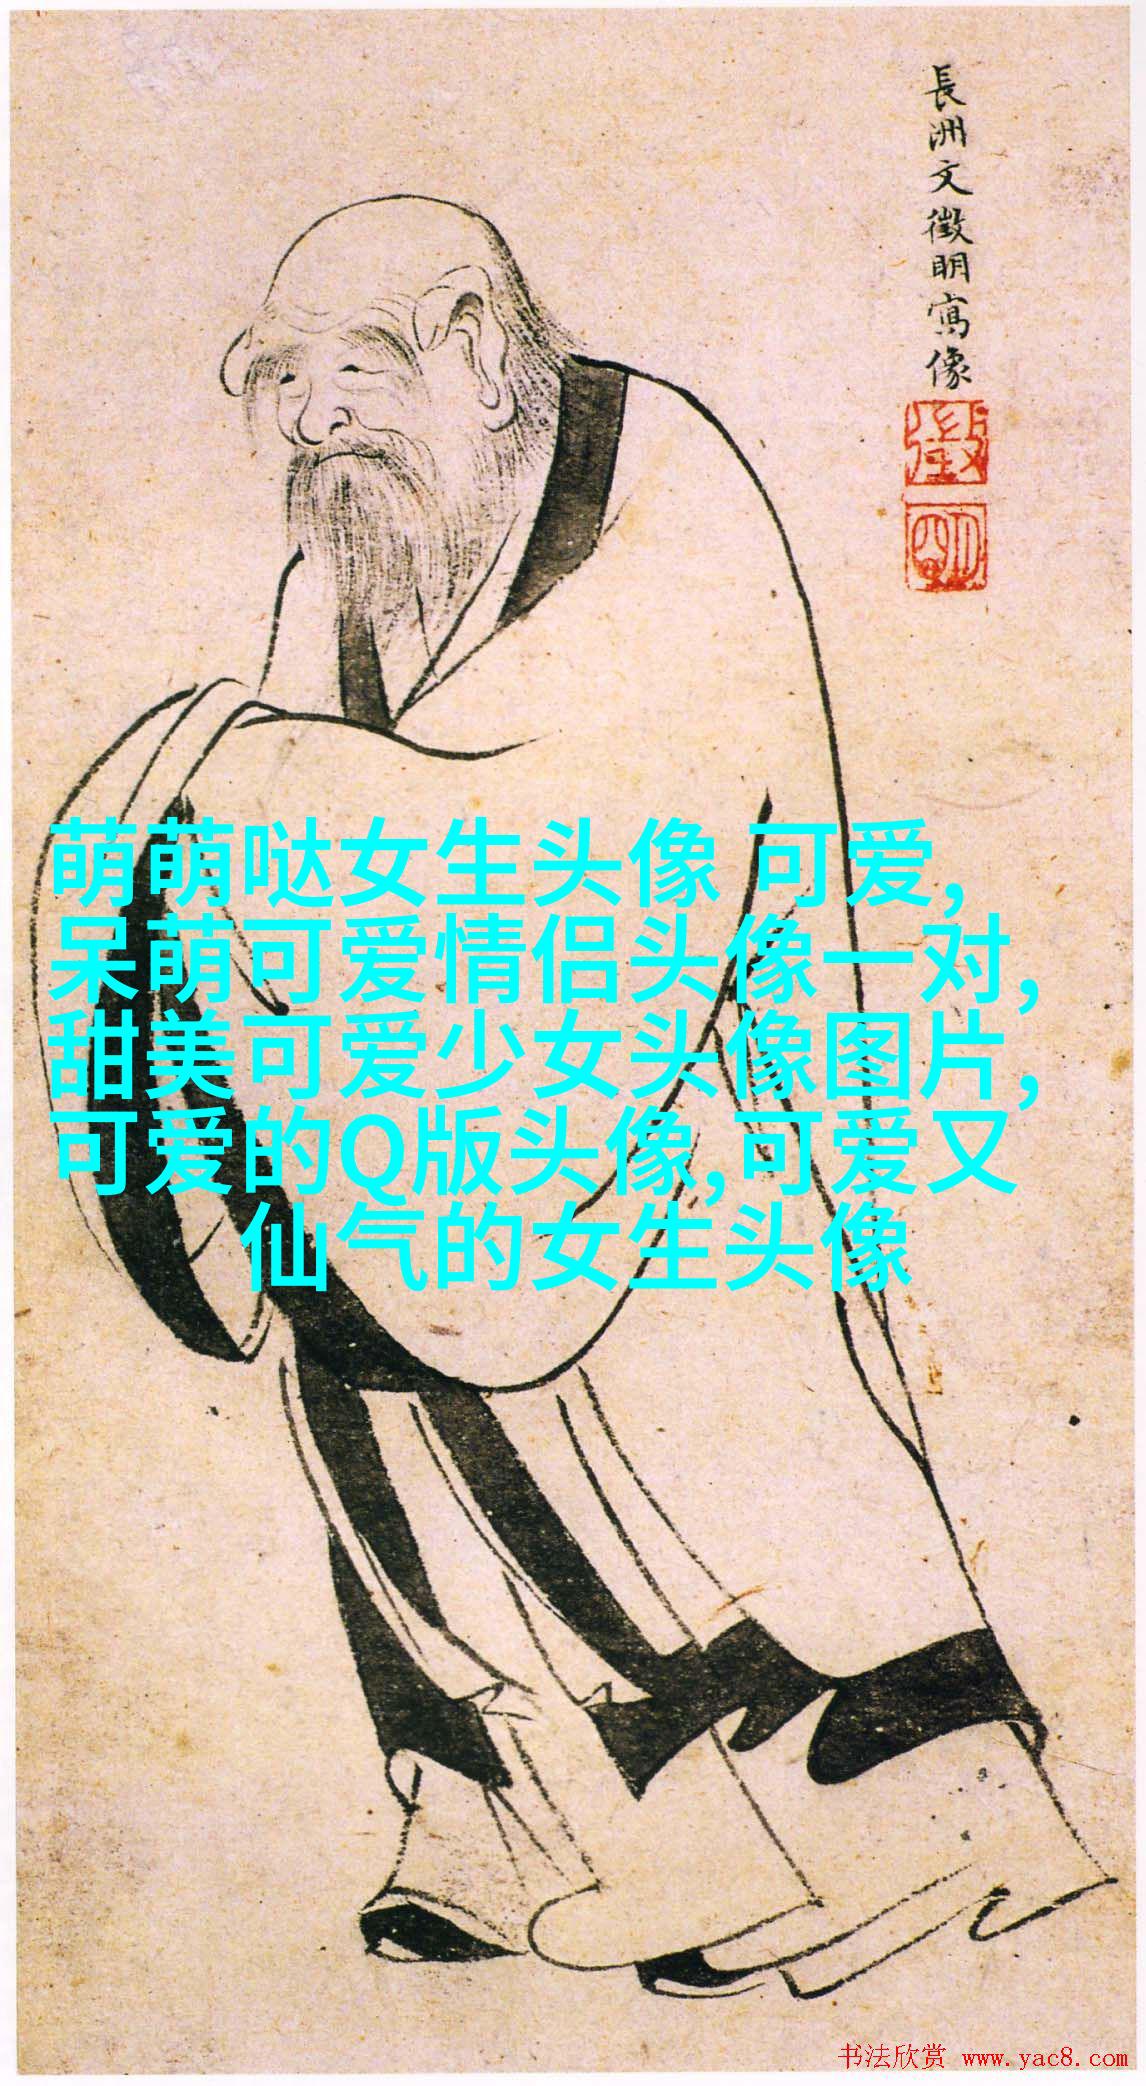 長洲文徵明寫像
徵
明
萌萌哒女生头像 可爱,
呆萌可爱情侣头像一对,
甜美可爱少女头像图片,
可爱的Q版头像,可爱又
仙气的女生头像
书法欣赏 www.yac8.com